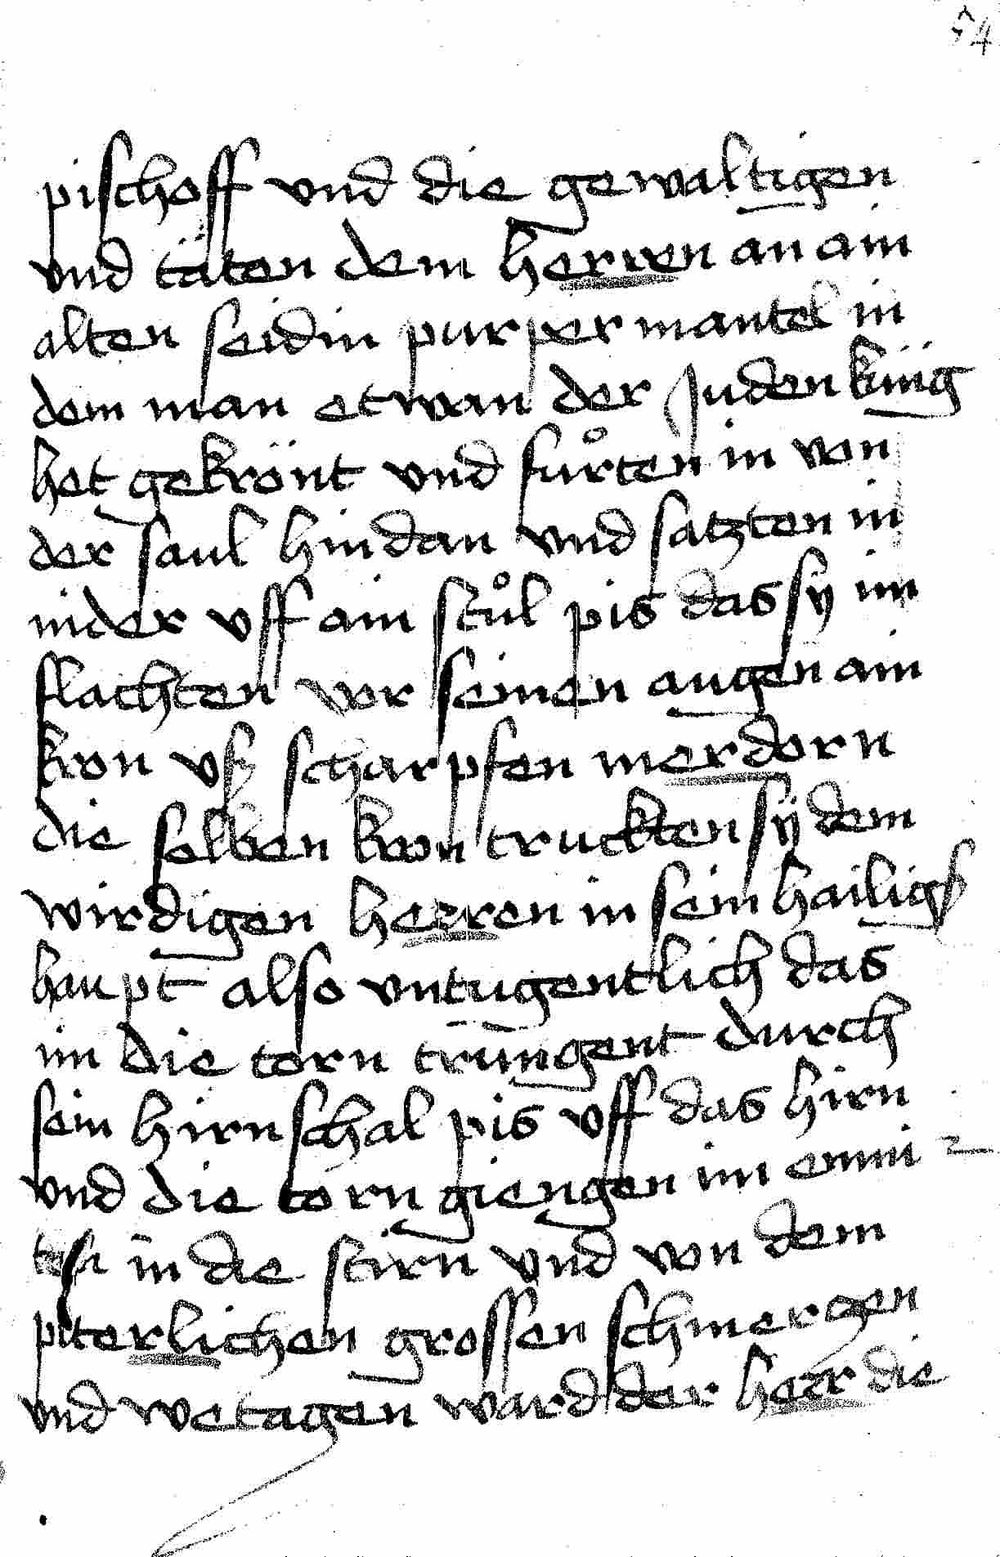 54
pischoff vnd die gewaltigen
vnd täten dem herren an ain
alten seidin purper mantel in
dem man etwan der Juden küng
het gekrönt vnd fůrten in von
der saul hindan vnd satzten in
nider vff ain stůl pis das sy im
flachten vor seinen augen ain
kron vß scharpfen merdorn
die selben kron truckten sÿ dem
wirdigen herren in sein hailigs
haupt also vntugentlich das
im die torn trungent durch
sein hirnschal pis vff das hirn
vnd die torn giengen im
in die stirn vnd von dem
piterlichen grossen schmerczen
vnd wetagen ward der herr die